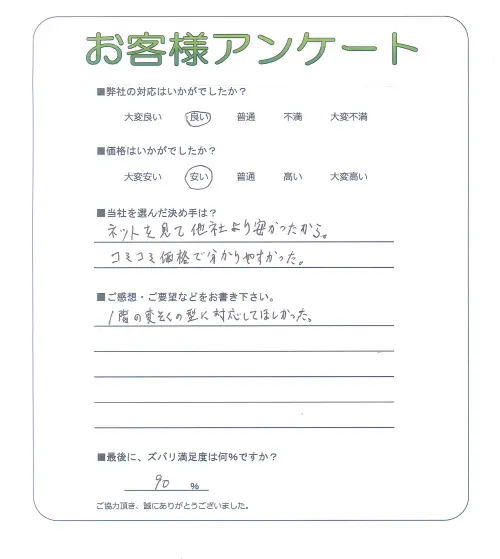 お客様アンケート
■弊社の対応はいかがでしたか？
大変良い 良い 普通 不満 大変不満
■価格はいかがでしたか？
大変安い 安い 普通 高い 大変高い
■当社を選んだ決め手は？
ネットを見て他社より安かったから。
コミコミ価格で分かりやすかった。
■ご感想・ご要望などをお書き下さい。
1階の変そくの型に対応してほしかった。
■最後に、ズバリ満足度は何％ですか？
90 ％
ご協力頂き、誠にありがとうございました。